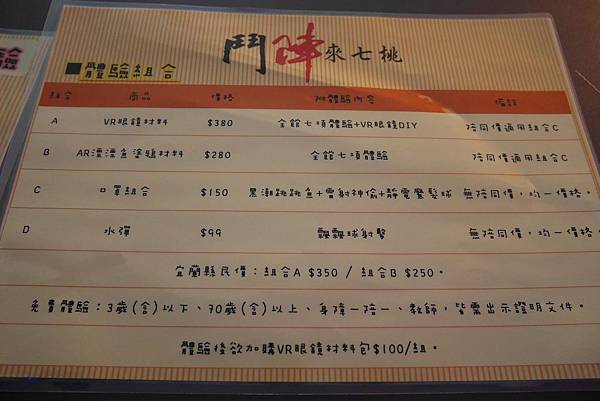 鬥陣來七桃
■體驗組合
組合 商品 價格 附體驗內容 備註
A VR眼鏡材料 $380 全館七項體驗+VR眼鏡DIY 陪同價適用組合C
B AR漂漂魚塗鴉材料 $280 全館七項體驗 陪同價適用組合C
C 口罩組合 $150 黑潮跳跳魚+雷射神偷+靜電鬢髮球 無陪同價,均一價格。
D 水彈 $99 飄飄球射擊 無陪同價,均一價格。
宜蘭縣民價:組合A $350 / 組合B $250。
免費體驗:3歲(含)以下、70歲(含)以上、身障一陪一、教師,皆需出示證明文件。
體驗後欲加購VR眼鏡材料包$100/組。